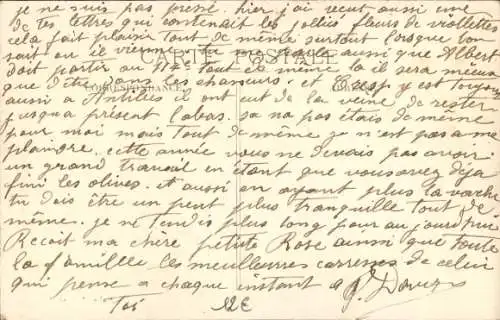 je ne suis pas pressé. hier j'ai recut aussi une
de tes lettres qui contenait les jolies fleurs de violettes
cela fait plaisir tout de même surtout lorsque lon
sait ou il vienne. tu me parle aussi que Albert
CARTE POSTALE
doit partir au 112 tout de même la il sera mieux
que d'être dans les chasseurs. et Cresp y est toujours
CORRESPONDANCE
aussi a Antibes il ont eut de la veine de rester
jusqu'a présent labas. sa na pas étais de même
pour moi mais tout de même je n'est pas a me
plaindre. cette année vous ne devais pas avoir
un grand travail en étant que vous avez déja
fini les olives. et aussi en ayant plus la vache
tu dois être un peut plus tranquille tout de
même. je ne tendis plus long pour aujourd'hui
Recoit ma chere petite Rose ainsi que toute
la famille les meuilleurres carresses de celui
qui pense a chaque instant a
Toi 12E